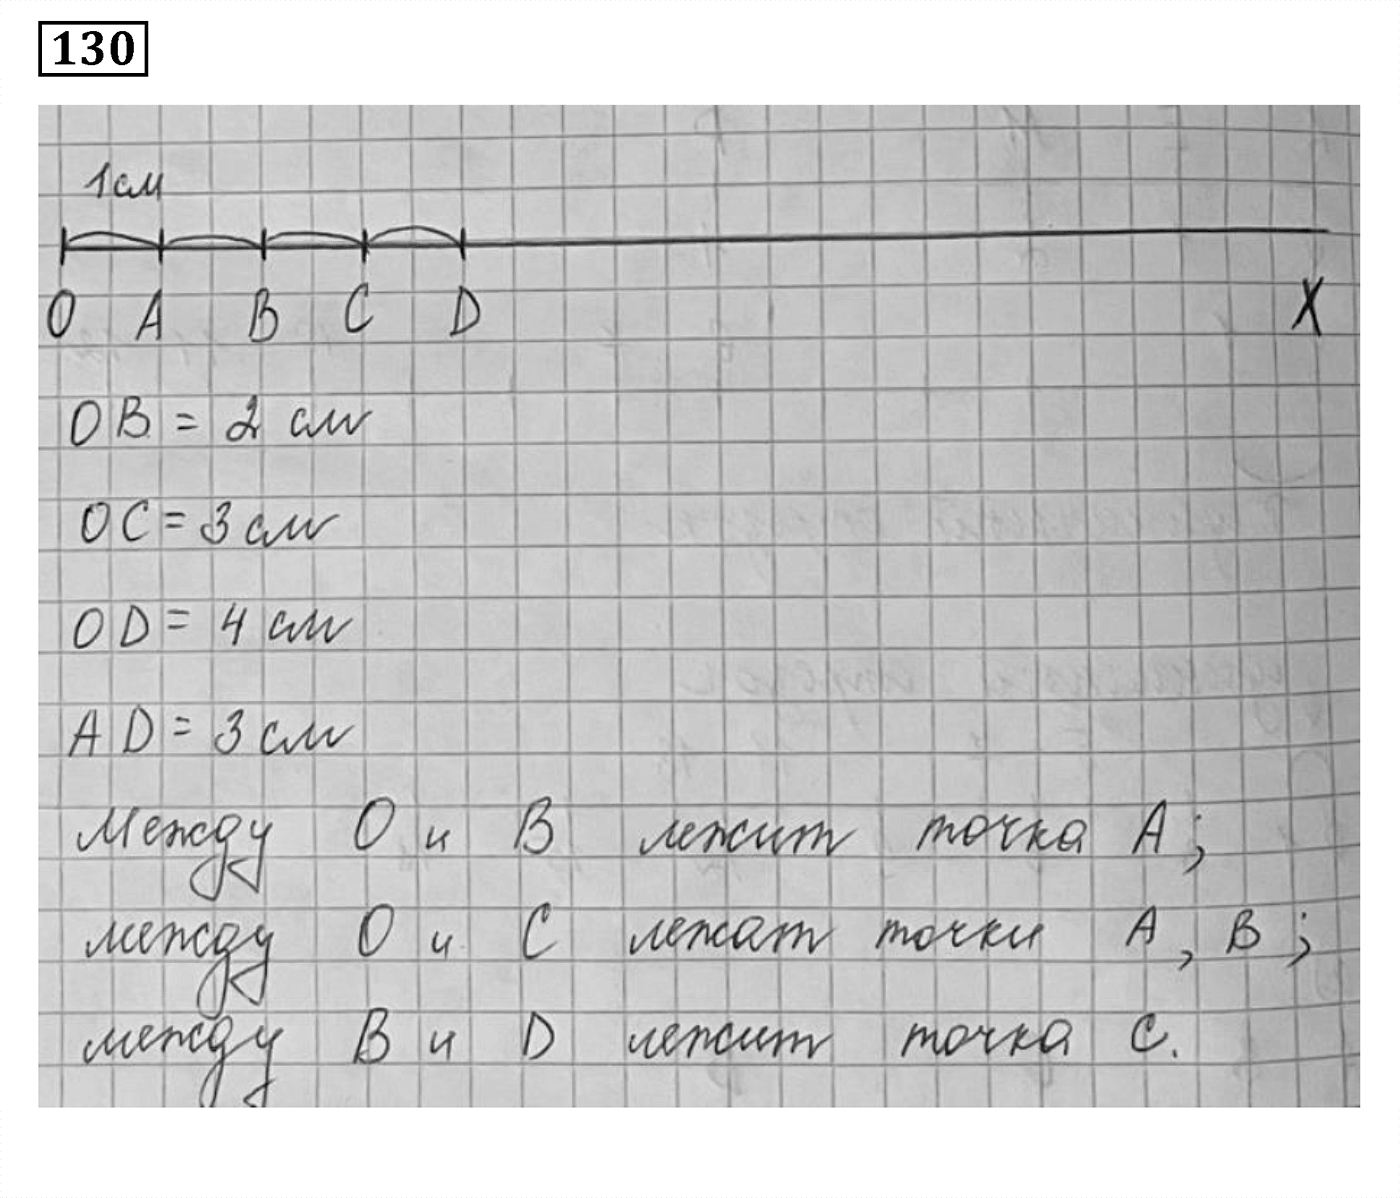 130
1см
O A B C D X
OB = 2 см
OC = 3 см
OD = 4 см
AD = 3 см
Между O и B лежит точка A;
между O и C лежат точки A, B;
между B и D лежит точка C.